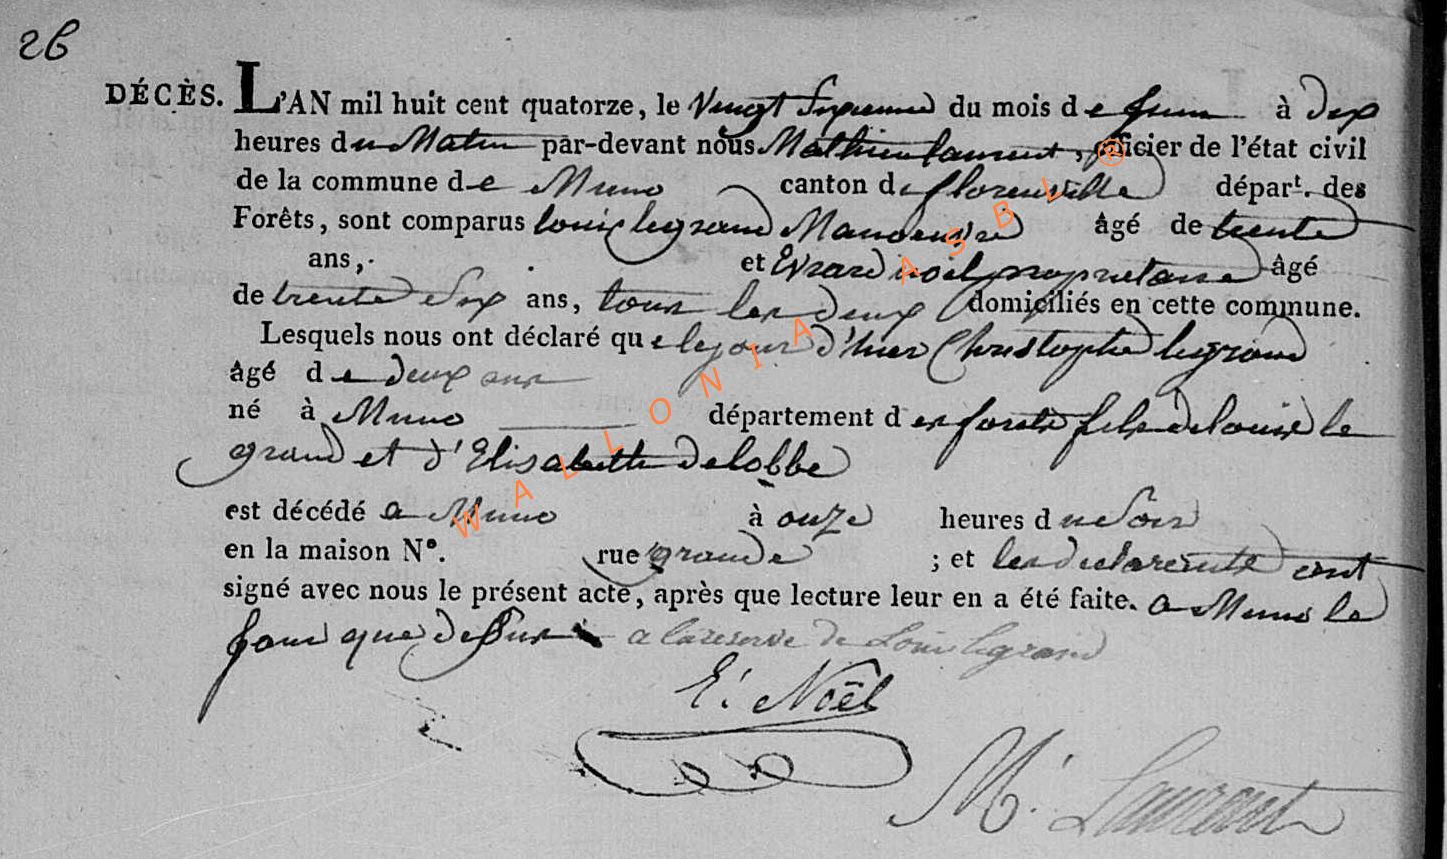 26
DÉCÈS. L'AN mil huit cent quatorze, le Vingt Sixieme du mois de Juin à dix
heures du Matin par-devant nous Mathieu laurent, officier de l'état civil
de la commune de Muno canton de florenville départ. des
Forêts, sont comparus louis legrand Manoeuvre âgé de trente
ans, et Evrard noël proprietaire âgé
de trente Six ans, tous les deux domiciliés en cette commune.
Lesquels nous ont déclaré que le jour d'hier Christophe legrand
âgé de deux ans
né à Muno département des forets fils de louis le
grand et d'Elisabette Delobbe
est décédé a Muno à onze heures du Soir
en la maison N°. rue grande ; et les declarents ont
signé avec nous le présent acte, après que lecture leur en a été faite. a Muno le
jour que dessus a la reserve de Louis legrand
E. Noël
M. Laurent
WALLONIA ASBL ®